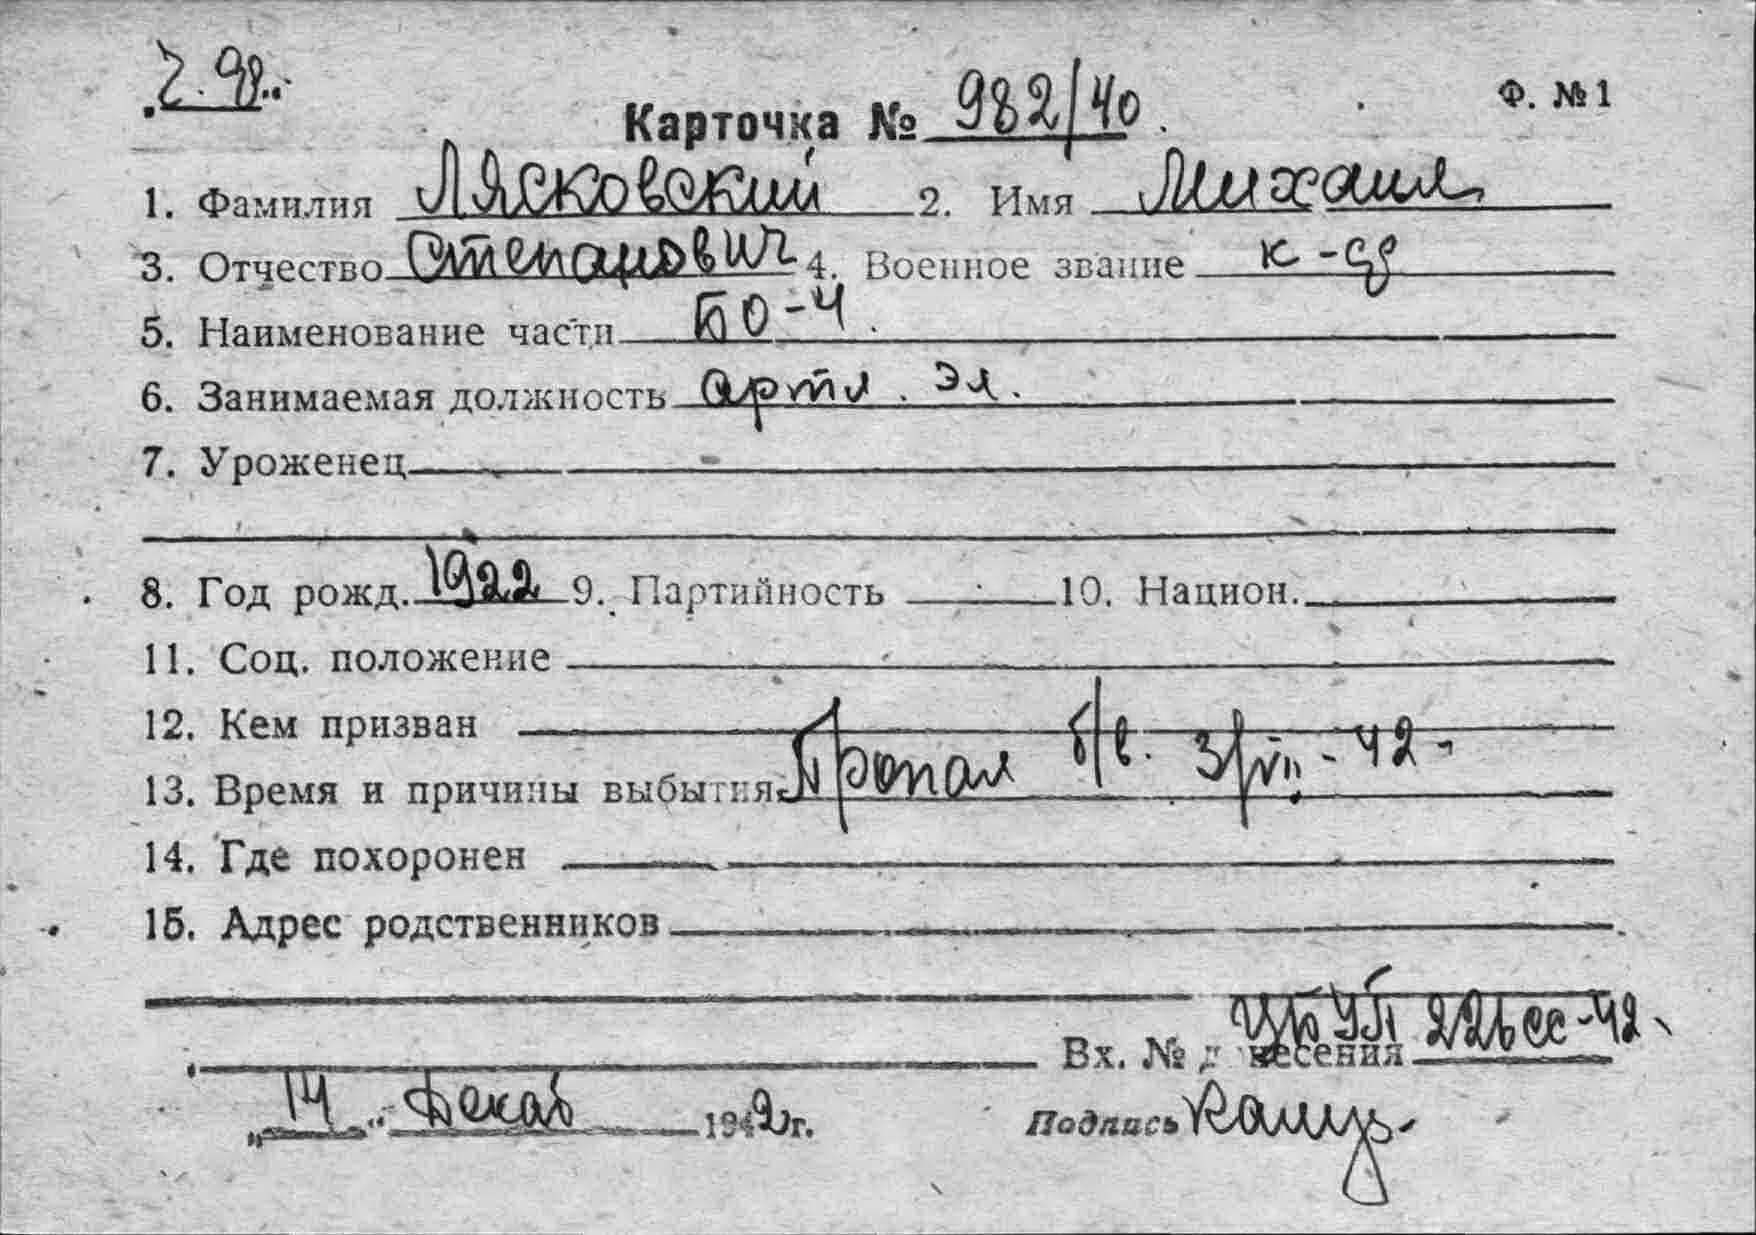 Ф. №1
Карточка № 982/40.
1. Фамилия Лясковский 2. Имя Михаил
3. Отчество Степанович 4. Военное звание к-ф
5. Наименование части БО-4.
6. Занимаемая должность артл. эл.
7. Уроженец
8. Год рожд. 1922 9. Партийность 10. Национ.
11. Соц. положение
12. Кем призван
13. Время и причины выбытия Пропал б/в. 3/VII-42-
14. Где похоронен
15. Адрес родственников
Вх. № донесения 226сс-42
„14" Декаб 1942 г. Подпись